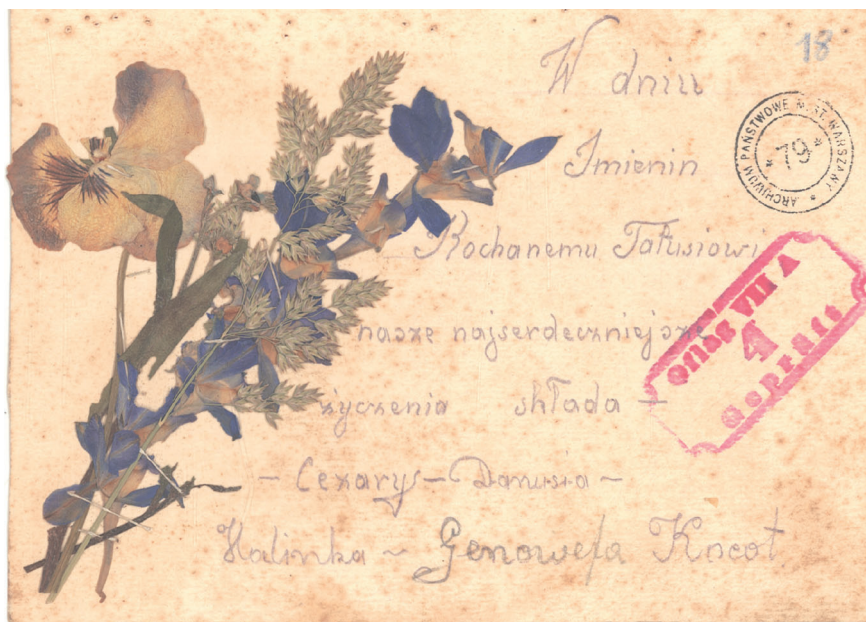 18
W dniu
Imienin
ARCHIWUM PAŃSTWOWE M. ST. WARSZAWY
79
Kochanemu Tatusiowi
nasze najserdeczniejsze
życzenia składa –
– Cezarys – Danusia –
Halinka ~ Genowefa Kocot
Geprüft
4